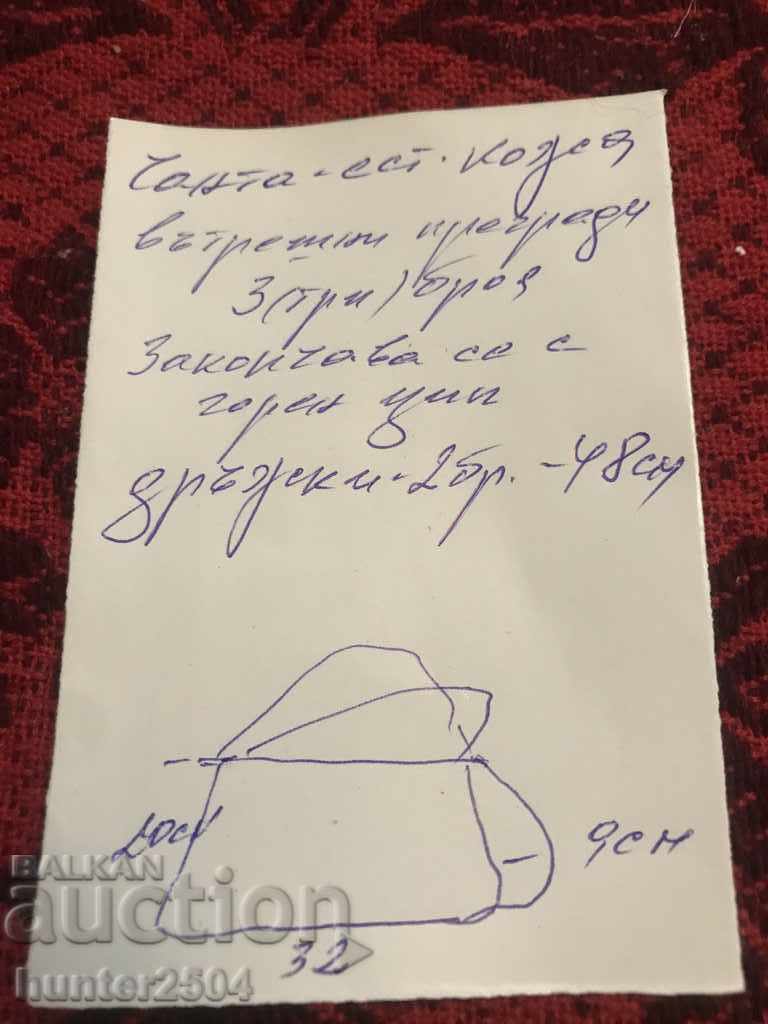 Чанта-ест. кожа
вътрешни прегради
3(три) броя
Закопчава се с
горен цип
дръжки-2бр.-48см
20см
9см
32
BALKAN
auction
hunter2504